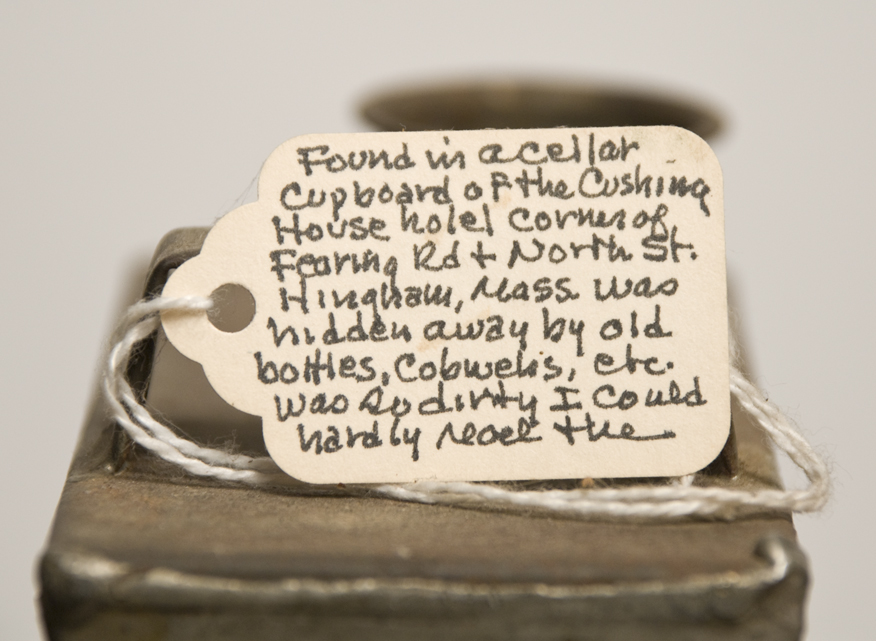 Found in a cellar
Cupboard of the Cushing
House hotel corner of
Fearing Rd + North St.
Hingham, Mass was
hidden away by old
bottles, Cobwebs, etc.
was so dirty I Could
hardly read the